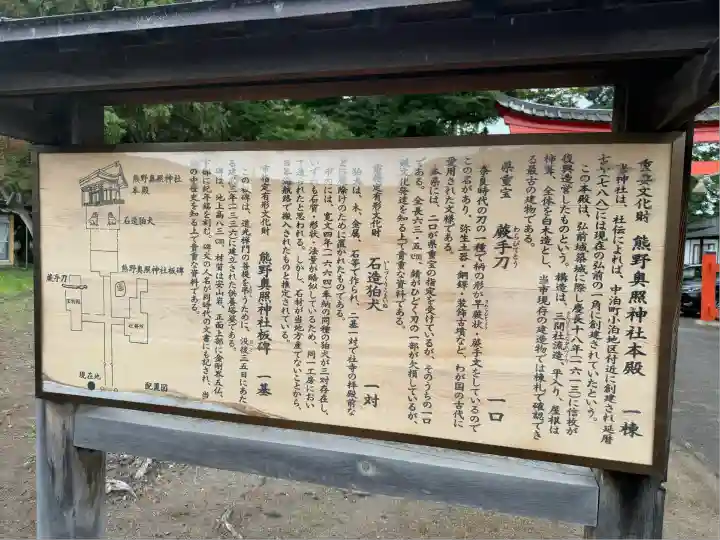 重要文化財 熊野奥照神社本殿 一棟
当神社は、社伝によれば、中泊町小泊地区付近に創建され延暦
七年(七八八)には現在の弘前の一角に創建されていたという。
この本殿は、弘前城築城に際し慶長十八年(一六一三)に信枚が
復興造営したものという。構造は、三間社流造、平入り、屋根は
柿葺、全体を白木造とし、当市現存の建造物では棟札で確認でき
る最古の建物である。
県重宝 蕨手刀 一口
わらびてとう
奈良時代の刀の一種で柄の形が早蕨状・藤手文をしているので
この名があり、弥生土器・銅鐸・装飾古墳など、わが国の古代に
愛用された文様である。
本県には、二口が県重宝の指定を受けているが、そのうちの一口
である。全長六三・五㎝、錆がひどく刃の一部が欠損しているが、
文化発達を知る上で貴重な資料である。
有形文化財 石造狛犬 一対
いしづくりこまいぬ
狛犬は、木、金属、石等で作られ、二基一対で社寺の拝殿前な
除けのために置かれたものである。
には、寛文四年(一六六四)奉納の同種の狛犬が三対存在し、
いずれも石質・形状・法量が略似しているため、同一工房におい
て造られたと思われる。しかし、石材が当地方産でないことから、
路で搬入されたものと推定されている。
市指定有形文化財 熊野奥照神社板碑 一基
この板碑は、道光禅門の菩提を弔うために、没後三五日にあた
る建武三年(一三三六)に建立された供養塔婆である。
碑は、地上高八三㎝、材質は安山岩、正面上部に金剛界五仏、
下部に紀年銘を刻む。碑文の人名が同時代の文書にも記され、当
の中世史を知る上で貴重な資料である。
熊野奥照神社
本殿
石造狛犬
熊野奥照神社板碑
蕨手刀
現在地
配置図